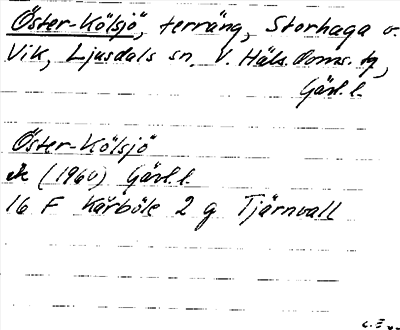 Öster-Kölsjö, terräng, Storhaga o.
Vik, Ljusdals sn, V. Häls. Doms. tg,
Gävl.l.
Öster-Kölsjö
Ek (1960) Gävl.l
16 F Kårböle 2 g Tjärnvall